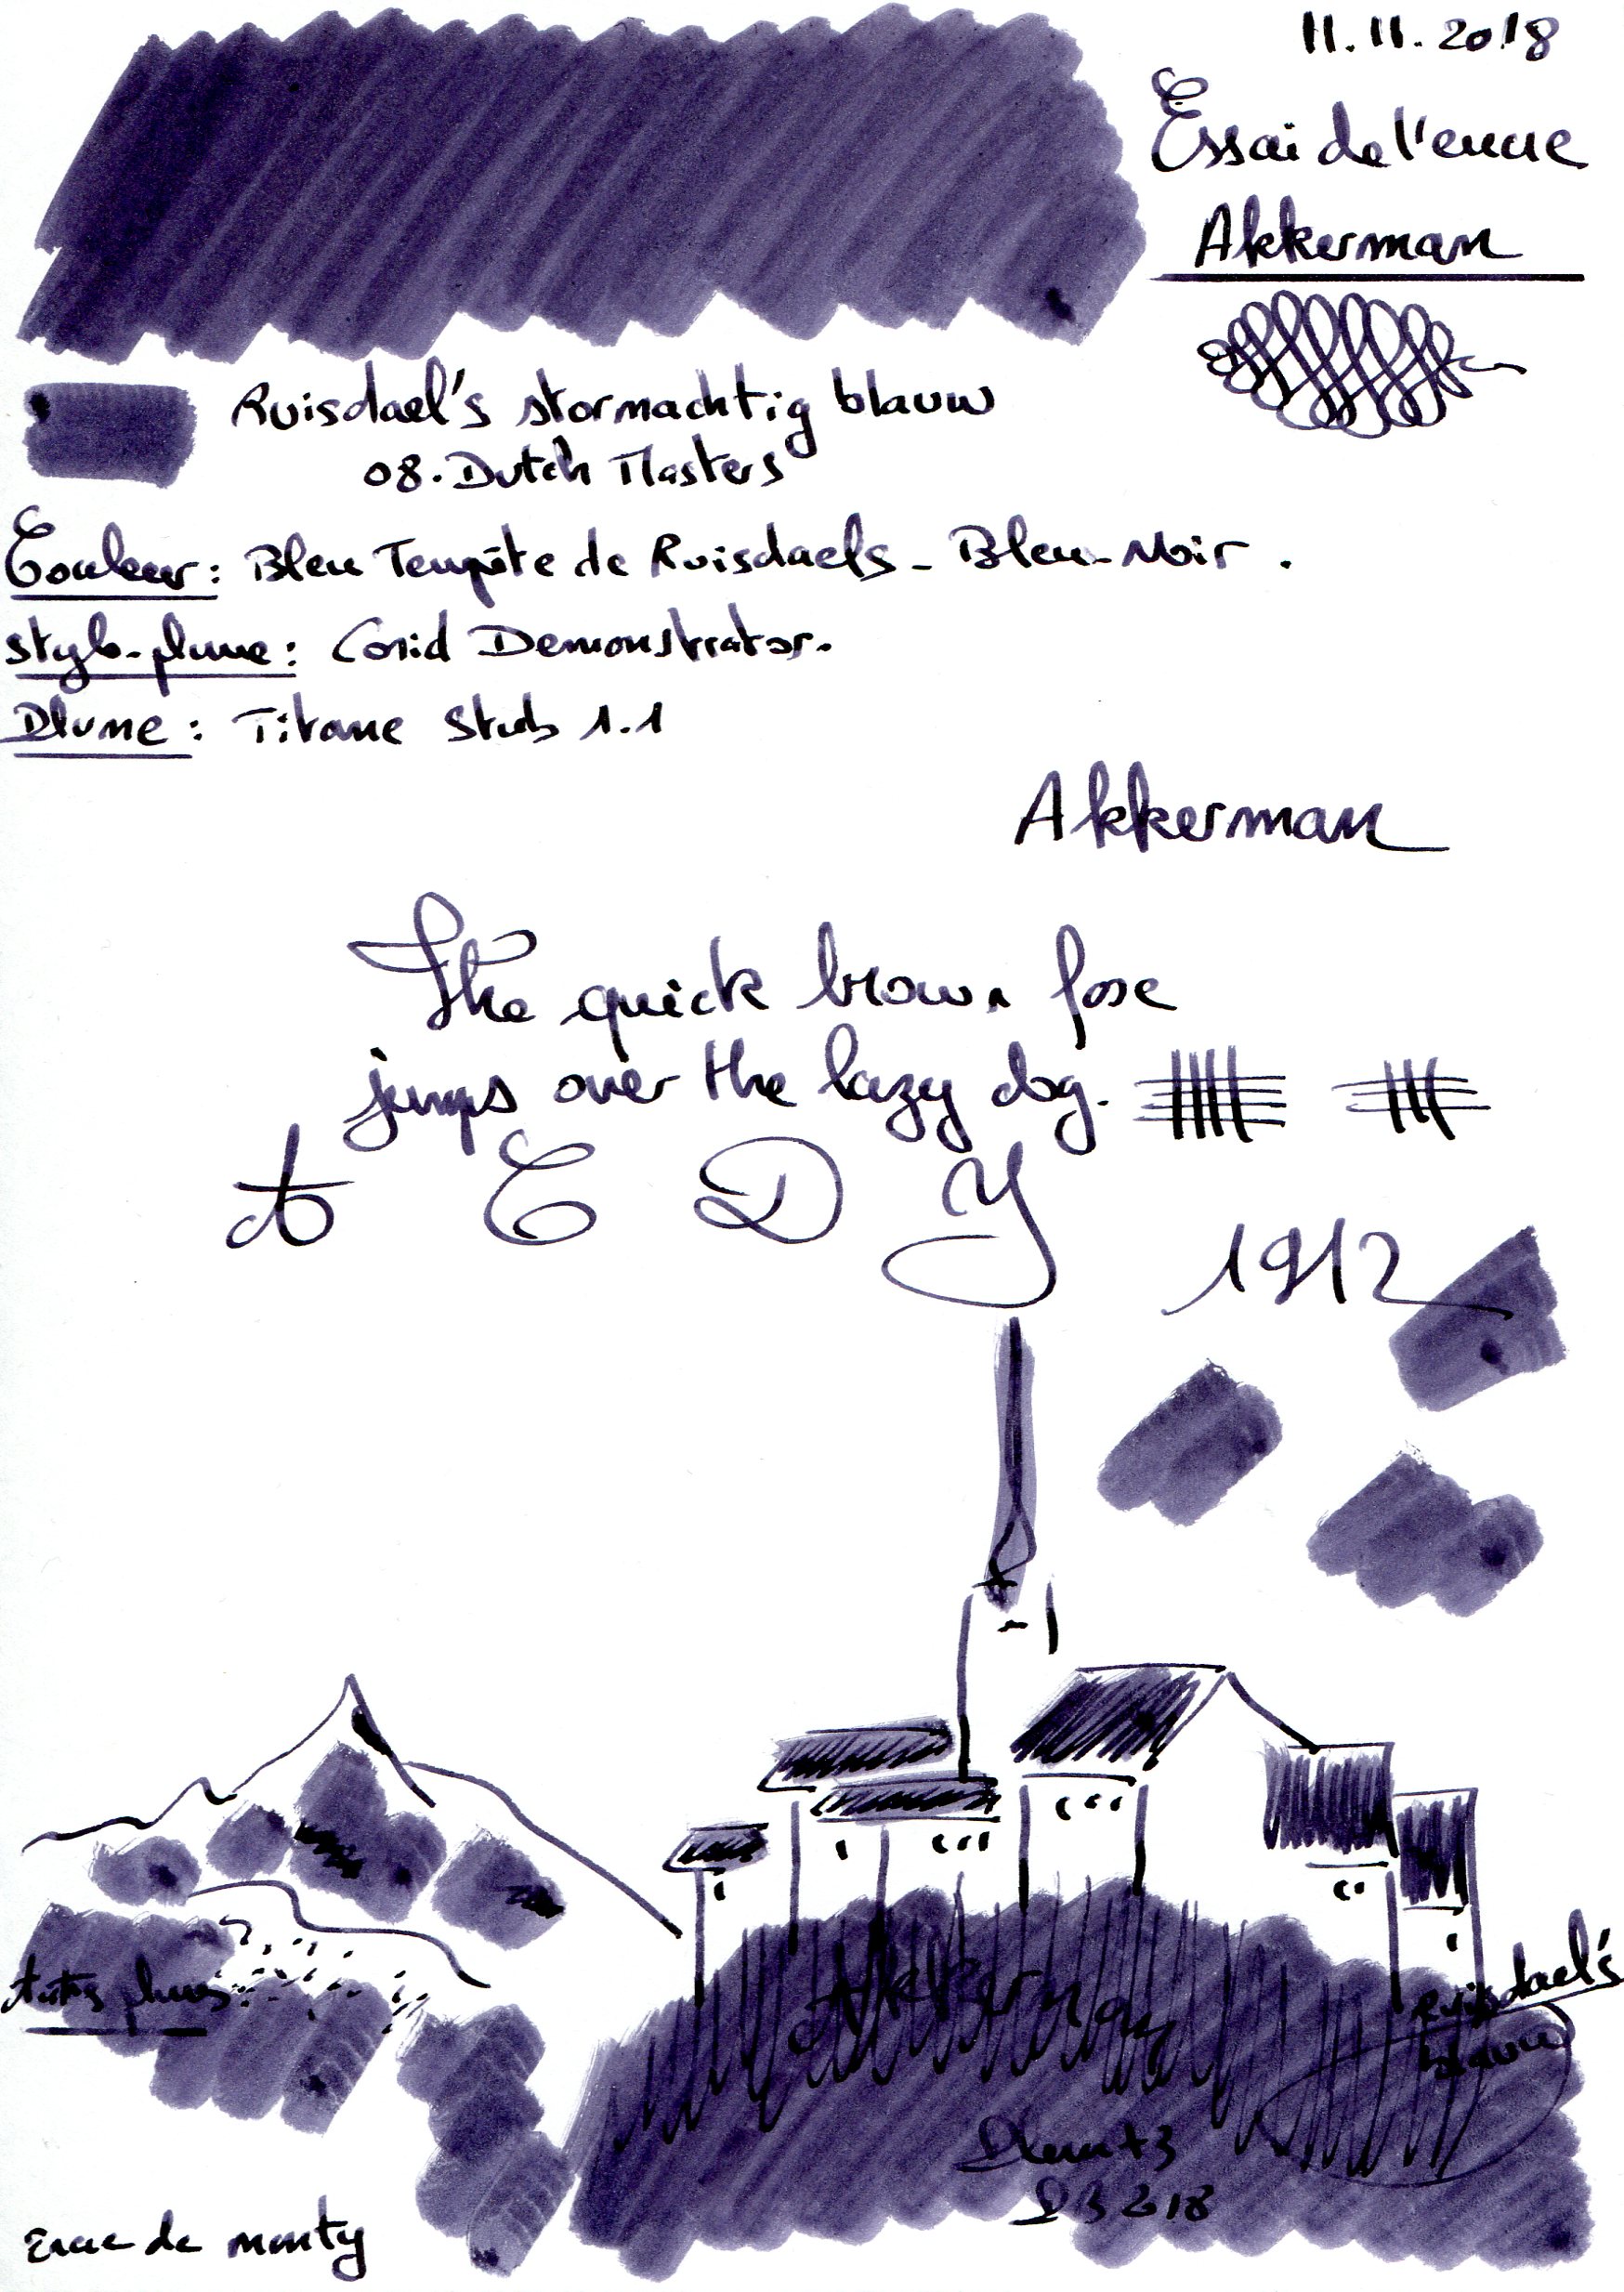 11.11.2018
Essai de l'encre
Akkerman
Ruisdael's stormachtig blauw
08. Dutch Masters
Couleur : Bleu Tempête de Ruisdaels - Bleu-Noir .
stylo-plume : Conid Demonstrator.
Plume : Titane Stub 1.1
Akkerman
The quick brown fox
jumps over the lazy dog.
A C D Y
1912
Akkerman
Ruisdael's
blauw
encre de monty